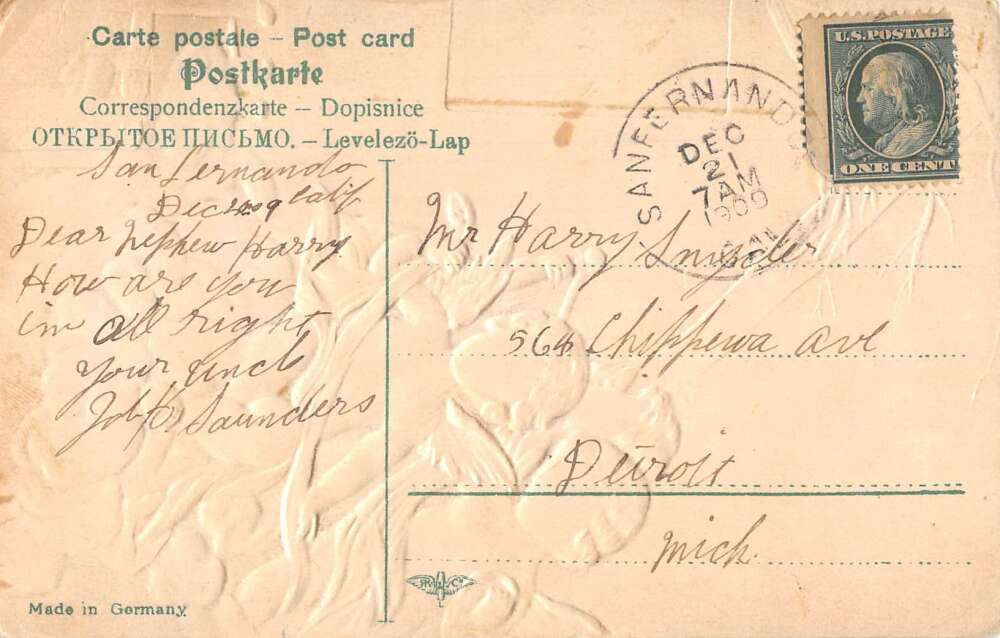 Carte postale – Post card
Postkarte
Correspondenzkarte – Dopisnice
ОТКРЫТОЕ ПИСЬМО. – Levelezö-Lap
U.S. POSTAGE
ONE CENT
SAN FERNANDO
DEC
21
7 AM
1909
CAL
San Fernando
Dec 09 Calif
Dear Nephew Harry
How are you
im all right
your uncle
Job Saunders
Mr Harry Snyder
564 Chippewa ave
Detroit
Mich.
Made in Germany